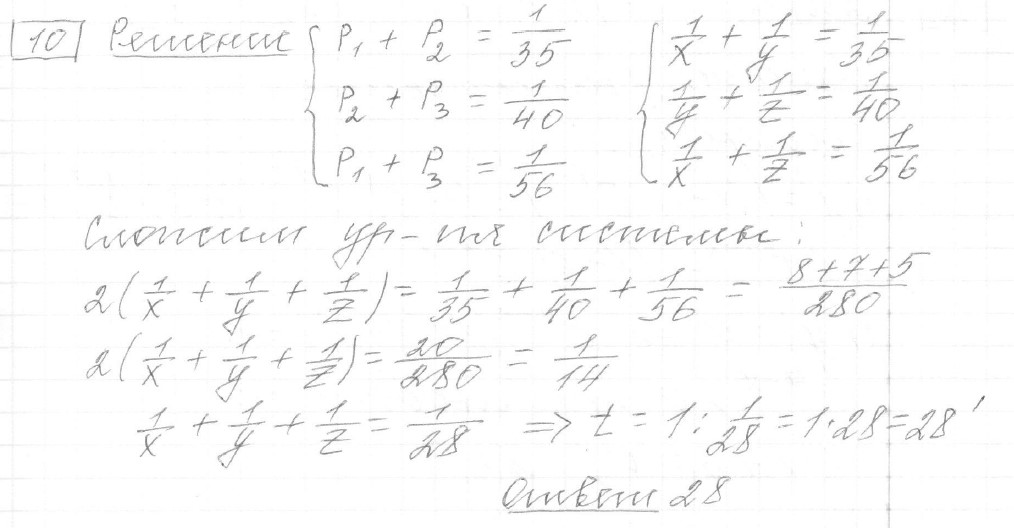 10 Решение { P₁ + P₂ = 1/35 { 1/x + 1/y = 1/35
P₂ + P₃ = 1/40 1/y + 1/z = 1/40
P₁ + P₃ = 1/56 1/x + 1/z = 1/56
Сложим ур-ия системы:
2(1/x + 1/y + 1/z) = 1/35 + 1/40 + 1/56 = (8+7+5)/280
2(1/x + 1/y + 1/z) = 20/280 = 1/14
1/x + 1/y + 1/z = 1/28 => t = 1 : 1/28 = 1·28 = 28'
Ответ 28